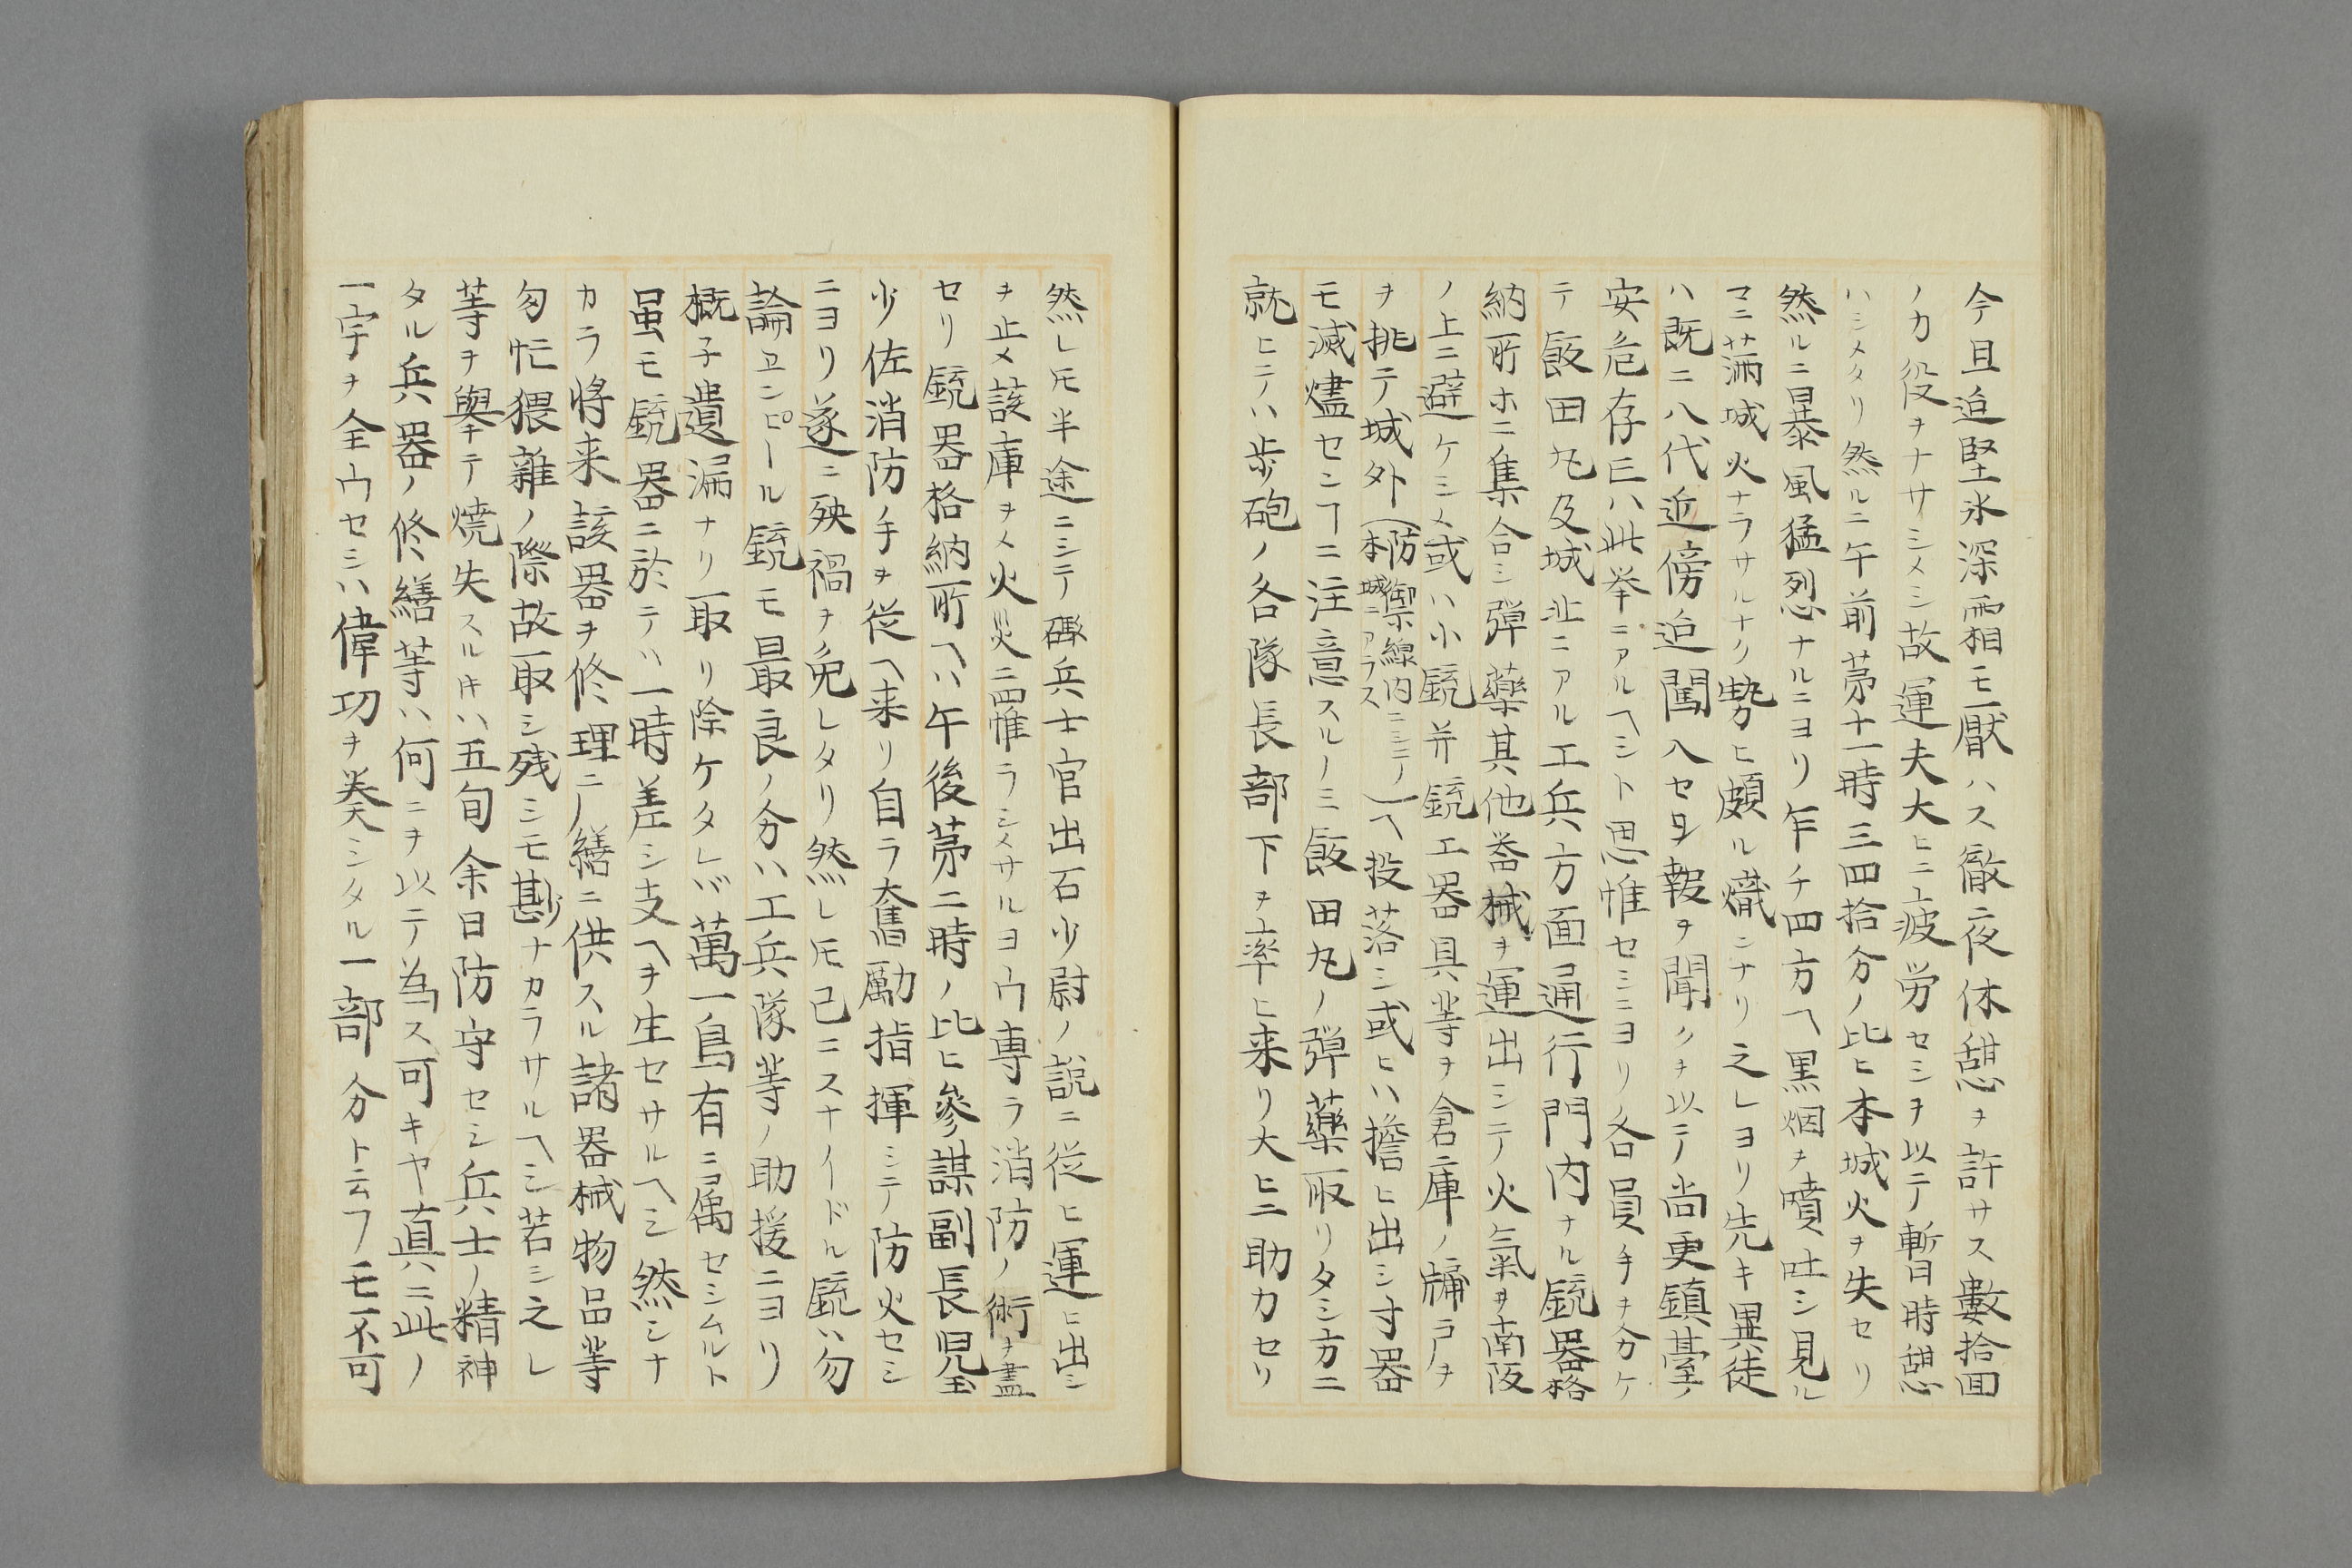 今旦迨堅氷深霜モ厭ハス徹夜休憩ヲ許サス數拾回
ノカ役ヲナサシメシ故運夫大ヒニ疲労セシヲ以テ暫日時憩
ハシメタリ然ルニ午前第十一時三四拾分ノ比ヒ本城火ヲ失セリ
然ルニ暴風猛烈ナルニヨリ乍チ四方ヘ黒烟ヲ噴吐シ見ル
マニ満城火ナラサルナク勢ヒ頗ル熾ンナリ之レヨリ先キ異徒
ハ既ニ八代近傍迨闖入セル報ヲ聞クヲ以テ尚更鎮臺ノ
安危存亡ハ此挙ニアルヘシト思惟セシニヨリ各員手ヲ分ケ
テ飯田丸及城北ニアル工兵方面通行門内ナル銃器格
納所ホニ集合シ彈藥其他器械ヲ運出シテ火氣ヲ南阪
ノ上ニ避ケシメ或ハ小銃并銃工器具等ヲ倉庫ノ牖ラ戸ヲ
ヲ挑テ城外（防禦線内ニシテ本城ニアラス）ヘ投落シ或ヒハ擔ヒ出シ寸器
モ滅燼セシヿニ注意スルノミ飯田丸ノ彈藥取リタシ方ニ
就ヒテハ歩砲ノ各隊長部下ヲ率ヒ来リ大ヒニ助力セリ
然レ𪜈半途ニシテ砲兵士官出石少尉ノ説ニ従ヒ運ヒ出シ
ヲ止メ該庫ヲメ火災ニ罹ラシメサルヨウ専ラ消防ノ術ヲ盡
セリ銃器格納所ヘハ午後第二時ノ比ヒ參謀副長児玉
少佐消防手ヲ従ヘ来リ自ラ奮勵指揮シテ防火セシ
ニヨリ遂ニ殃禍ヲ免レタリ然レ𪜈已ニスナイドル銃ハ勿
論ヱンピール銃モ最良ノ分ハ工兵隊等ノ助援ニヨリ
概子遺漏ナリ取リ除ケタレバ萬一烏有ニ属セシムルト
虽モ銃器ニ於テハ一時差シ支ヘヲ生セサルヘシ然シナ
カラ将来該器ヲ修理シ繕ニ供スル諸器械物品等
匆忙猥雜ノ際故取シ残シモ尠ナカラサルヘシ若シ之レ
等ヲ擧テ焼失スル𪜈ハ五旬余日防守セシ兵士ノ精神
タル兵器ノ修繕等ハ何ニヲ以テ為ス可キヤ真ニ此ノ
一宇ヲ全ウセシハ偉功ヲ奏シタル一部分ト云フモ不可